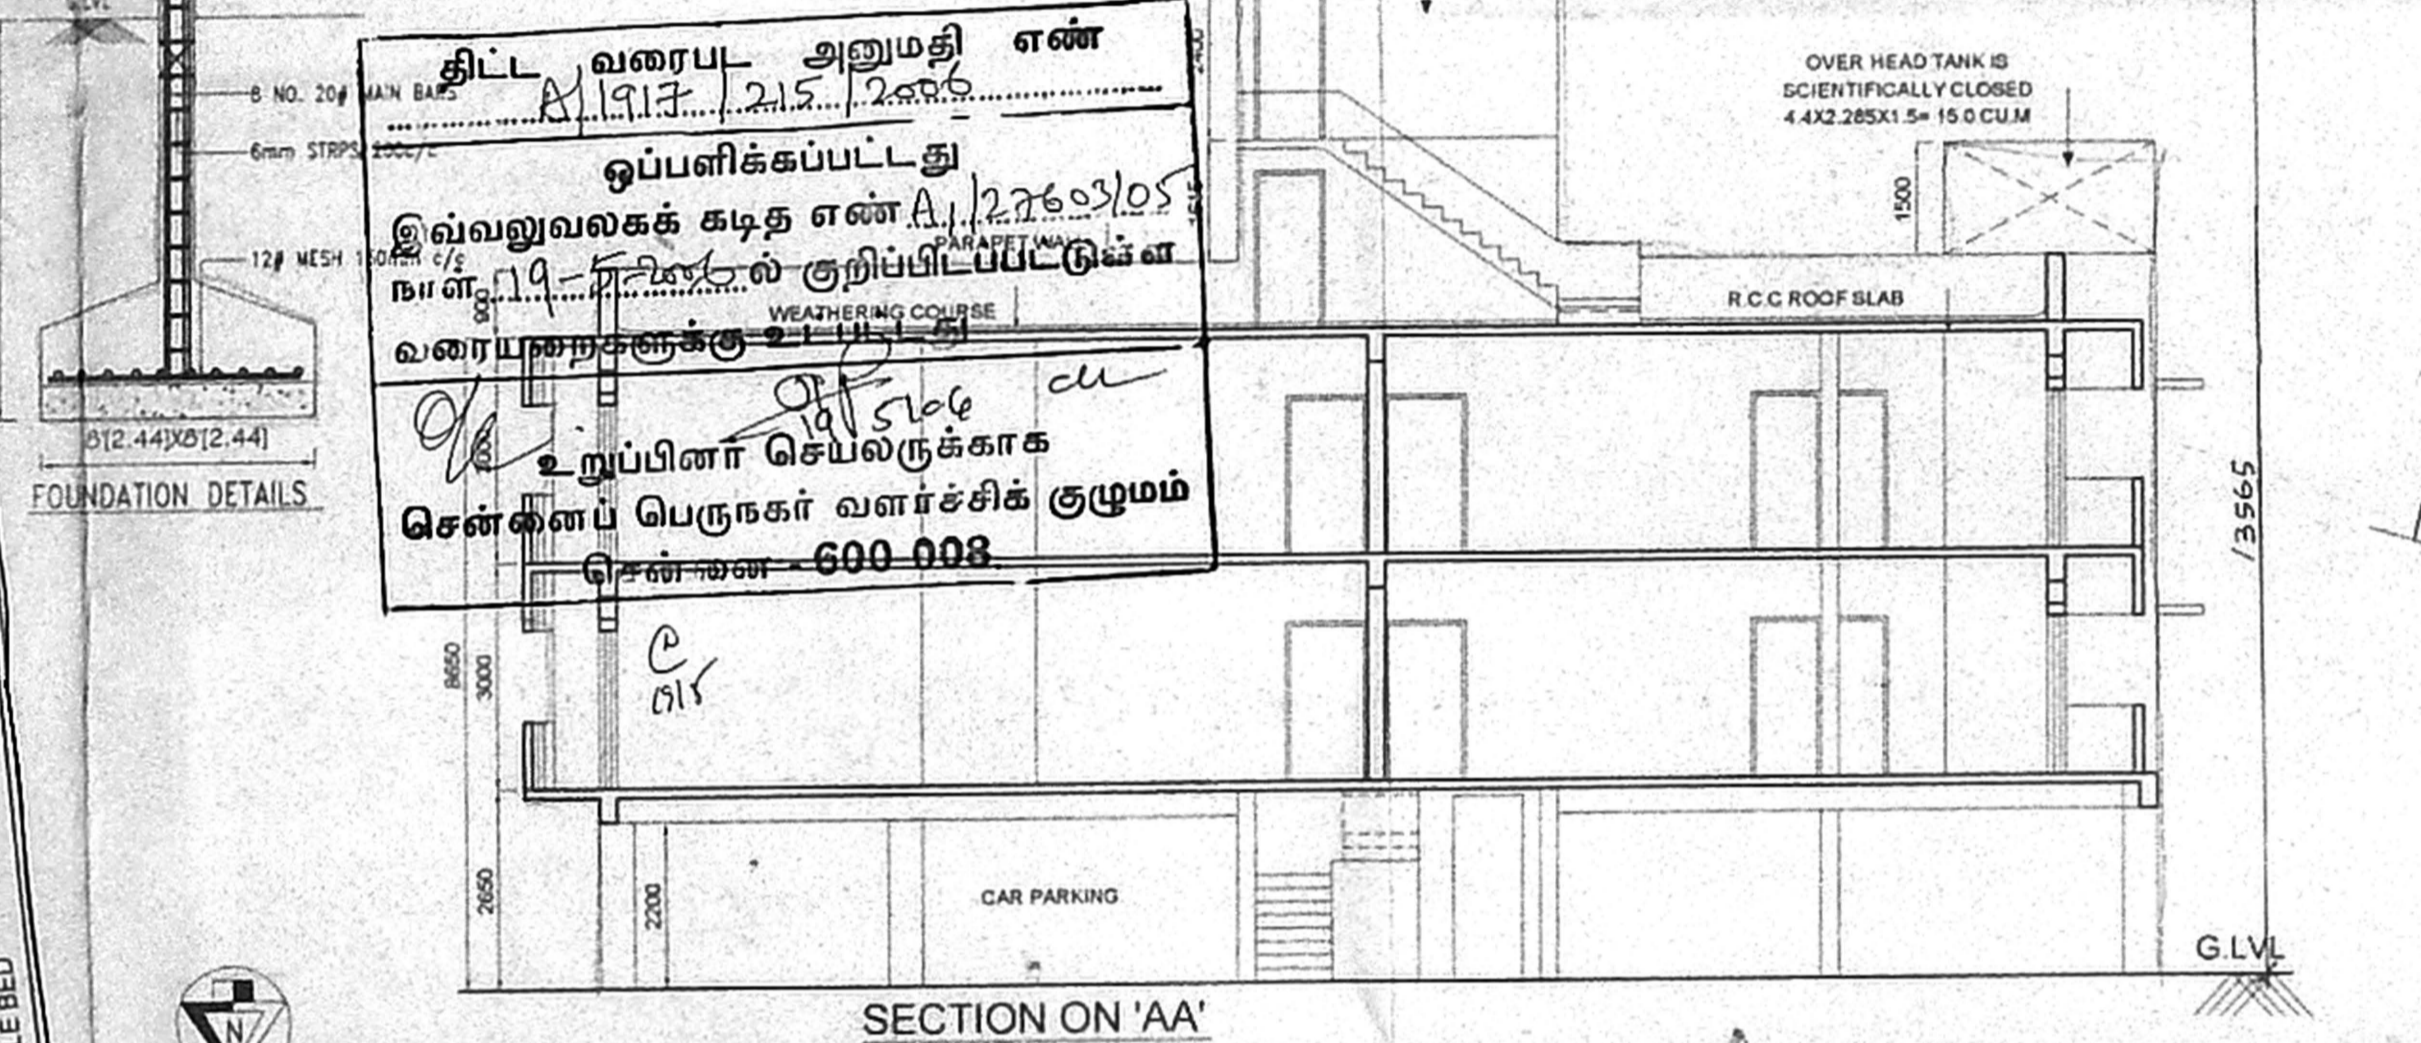 G.LVL
8 NO. 20# MAIN BARS
6mm STRPS 200c/c
12# MESH 150mm c/c
8'[2.44]X8'[2.44]
FOUNDATION DETAILS
திட்ட வரைபட அனுமதி எண்
A/1917/215/2006
ஒப்பளிக்கப்பட்டது
இவ்வலுவலகக் கடித எண் A1/27603/05
நாள் 19-5-2006 ல் குறிப்பிடப்பட்டுள்ள
வரையறைகளுக்கு உட்பட்டது
19/5/06
உறுப்பினர் செயலருக்காக
சென்னைப் பெருநகர் வளர்ச்சிக் குழுமம்
சென்னை - 600 008.
C
19/5
PARAPET WALL
WEATHERING COURSE
2400
1515
900
3000
3000
8650
2650
2200
OVER HEAD TANK IS
SCIENTIFICALLY CLOSED
4.4X2.285X1.5= 15.0 CU.M
1500
R.C.C ROOF SLAB
13565
CAR PARKING
G.LVL
SECTION ON 'AA'
N